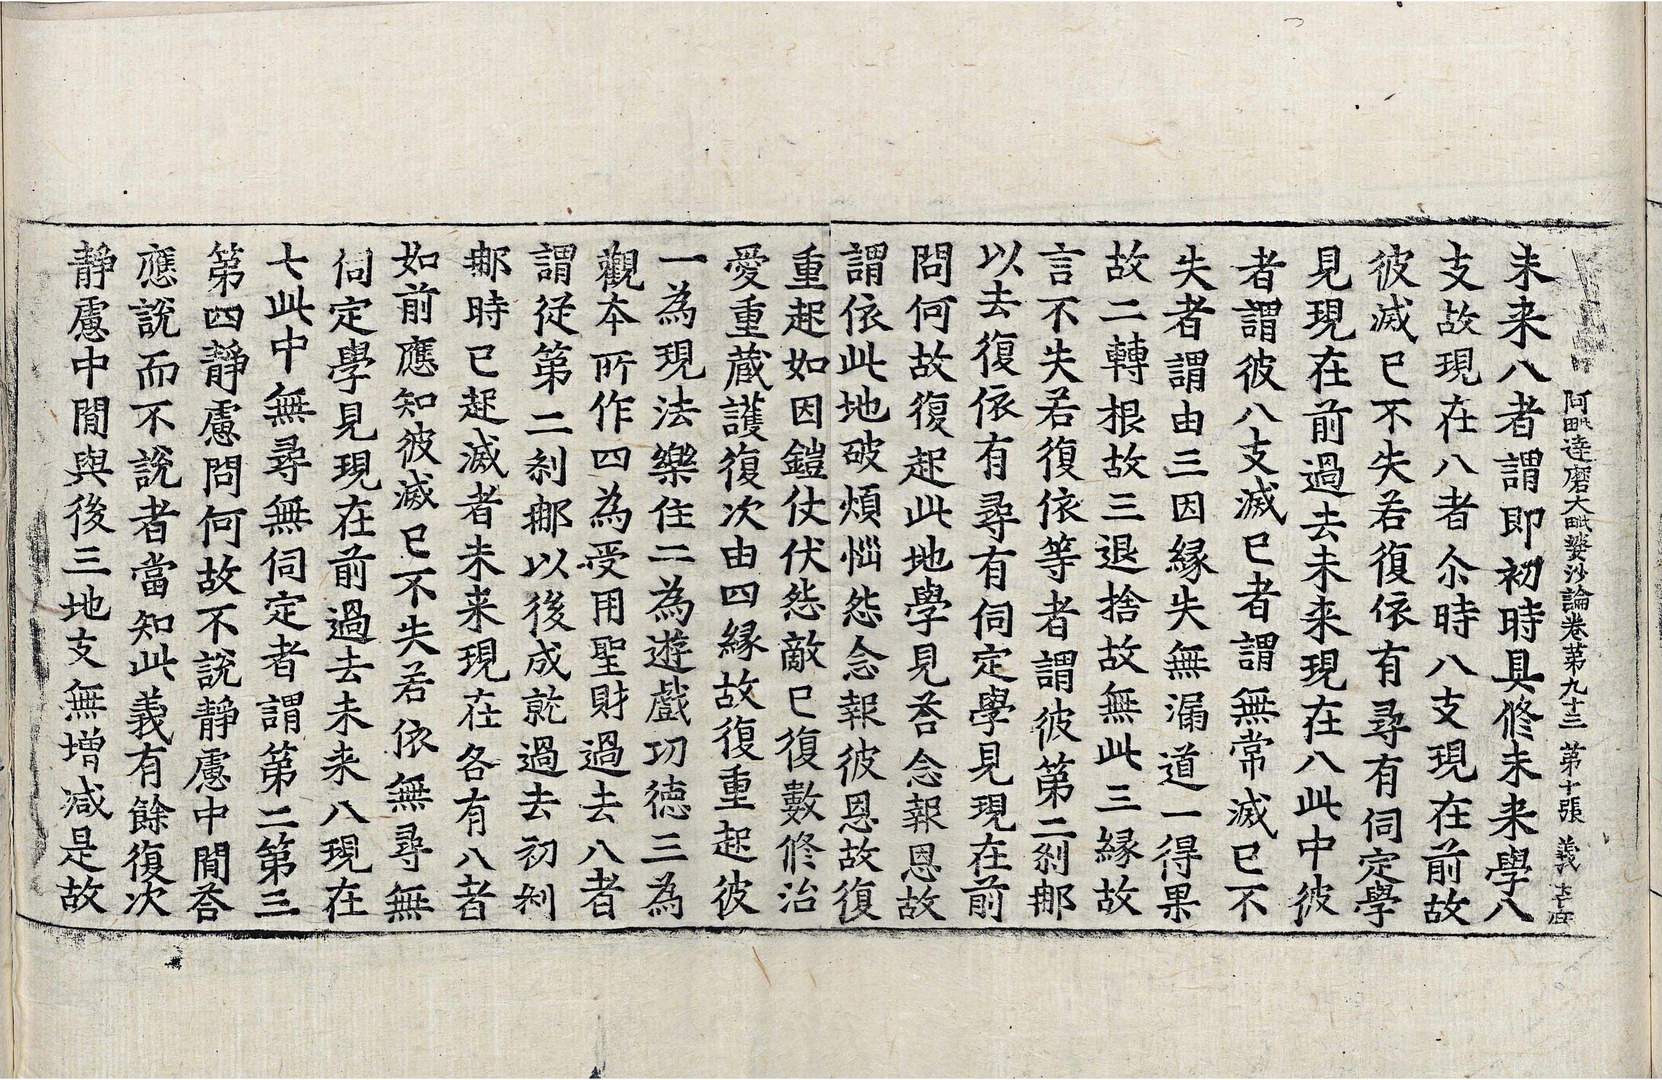 阿毗達磨大毗婆沙論卷第九十三 第十張 義
未来八者謂即初時具修未来學八
支故現在八者尒時八支現在前故
彼滅已不失若復依有尋有伺定學
見現在前過去未来現在八此中彼
者謂彼八支滅已者謂無常滅已不
失者謂由三因緣失無漏道一得果
故二轉根故三退捨故無此三緣故
言不失若復依等者謂彼第二剎那
以去復依有尋有伺定學見現在前
問何故復起此地學見荅念報恩故
謂依此地破煩惱怨念報彼恩故復
重起如因鎧仗伏怨敵已復數修治
愛重蔵護復次由四緣故復重起彼
一為現法樂住二為遊戲功德三為
觀本所作四為受用聖財過去八者
謂從第二剎那以後成就過去初剎
那時已起滅者未来現在各有八者
如前應知彼滅已不失若依無尋無
伺定學見現在前過去未来八現在
七此中無尋無伺定者謂第二第三
第四靜慮問何故不說靜慮中閒荅
應說而不說者當知此義有餘復次
靜慮中閒與後三地支無增減是故